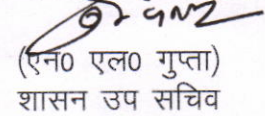 (एन0 एल0 गुप्ता)
शासन उप सचिव